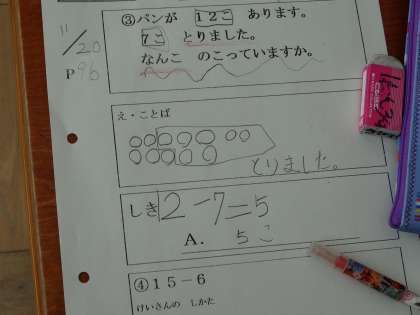 11/20
P96
③パンが 12こ あります。
7こ とりました。
なんこ のこっていますか。
え・ことば
とりました。
しき 12-7=5
A. 5こ
④15-6
けいさんの しかた